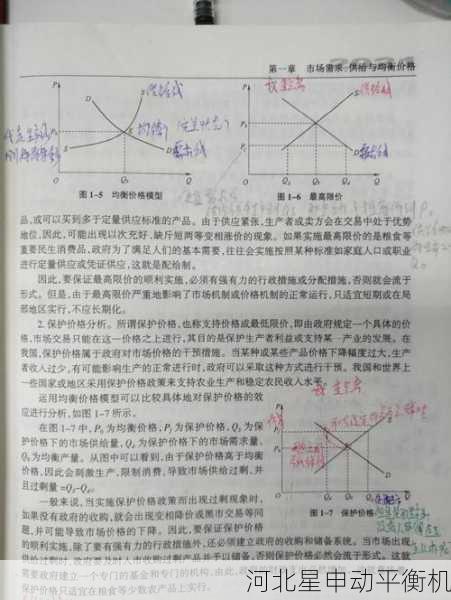 第一章 市场需求、供给与均衡价格
图 1-5 均衡价格模型
图 1-6 最高限价
供给线
需求线
品,或可以买到多于定量供应标准的产品。由于供应紧张,生产者或卖方会在交易中处于优势
地位,因此,可能出现以次充好、缺斤短两等变相涨价的现象。如果实施最高限价的是粮食等
重要民生消费品,政府为了满足人们的基本需要,往往会实施按照某种标准如家庭人口或职业
进行定量供应或凭证供应,这就是配给制。
因此,要保证最高限价的顺利实施,必须有强有力的行政措施或分配措施,否则就会流于
形式。但是,由于最高限价严重地影响了市场机制或价格机制的正常运行,只适宜短期或在局
部地区实行,不应长期化。
2. 保护价格分析。所谓保护价格,也称支持价格或最低限价,即由政府规定一个具体的价
格,市场交易只能在这一价格之上进行,其目的是保护生产者利益或支持某一产业的发展。在
我国,保护价格属于政府对市场价格的干预措施。当某种或某些产品价格下降幅度过大,生产
者收入过少,有可能影响生产的正常进行时,政府可以采取这种方式进行干预。我国和世界上
一些国家或地区采用保护价格政策来支持农业生产和稳定农民收入水平。
运用均衡价格模型可以比较具体地对保护价格的效
应进行分析,如图 1-7 所示。
在图 1-7 中,P₀ 为均衡价格,P₁ 为保护价格,Q₂ 为保
护价格下的市场供给量,Q₁ 为保护价格下的市场需求量,
Q₀ 为均衡产量。从图中可以看到,由于保护价格高于均衡
价格,因此会刺激生产,限制消费,导致市场供给过剩,并
且过剩量 =Q₂-Q₁。
一般来说,当实施保护价格政策而出现过剩现象时,
如果没有政府的收购,就会出现变相降价或黑市交易等问
题,并可能导致市场价格的下降。因此,要保证保护价格
图 1-7 保护价格
的顺利实施,除了要有强有力的行政措施外,还必须建立政府的收购和储备系统。当市场出现
供给过剩时,政府要及时入市收购过剩产品并予以储备,否则保护价格必然会流于形式。这就
需要政府建立一个专门的基金和专门的机构,由此
保护价格只适宜在粮食等少数农产品上实行。
河北星申动平衡机